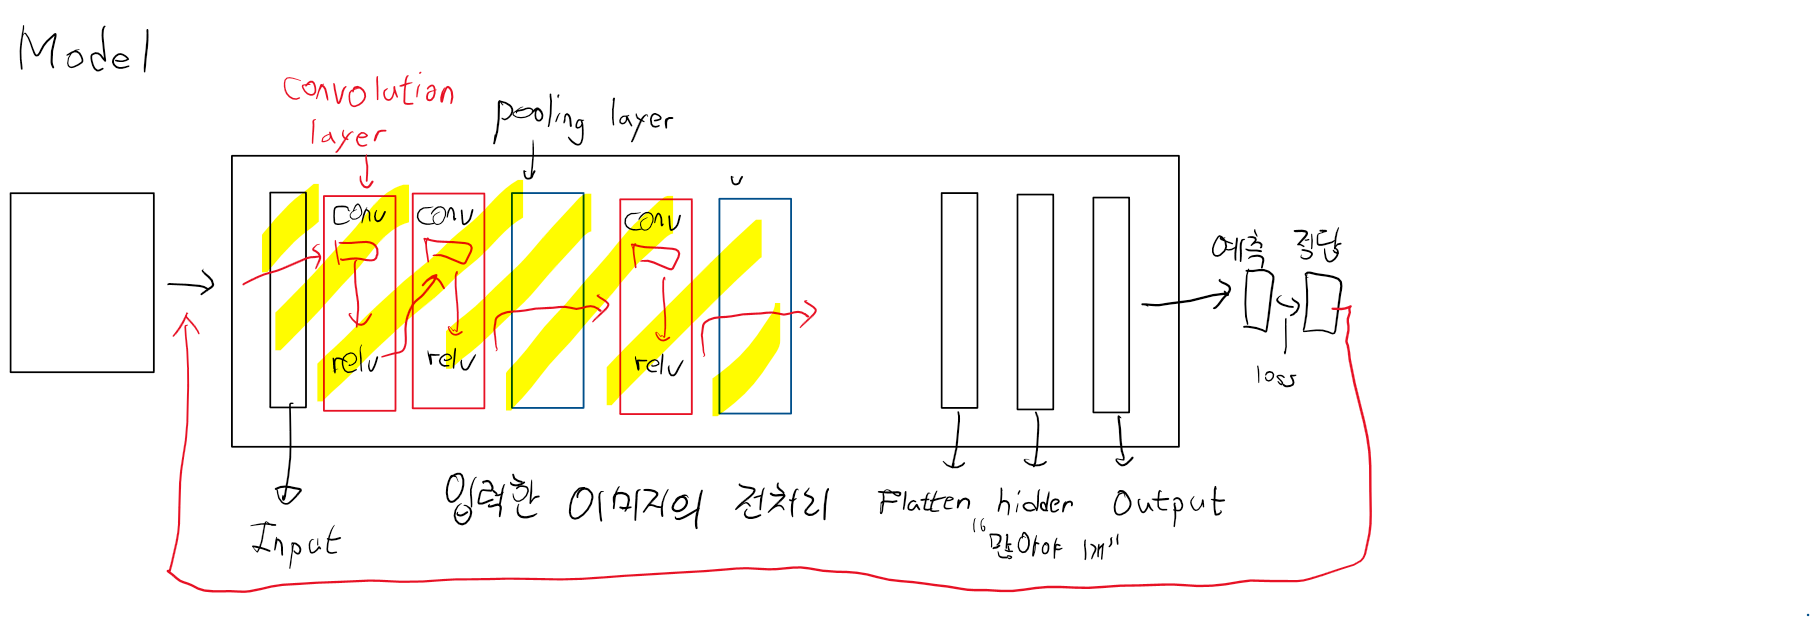 Model
Convolution
layer
pooling layer
conv
conv
conv
relu
relu
relu
예측 정답
loss
Input
입력한 이미지의 전처리
Flatten hidden Output
"많아야 1개"